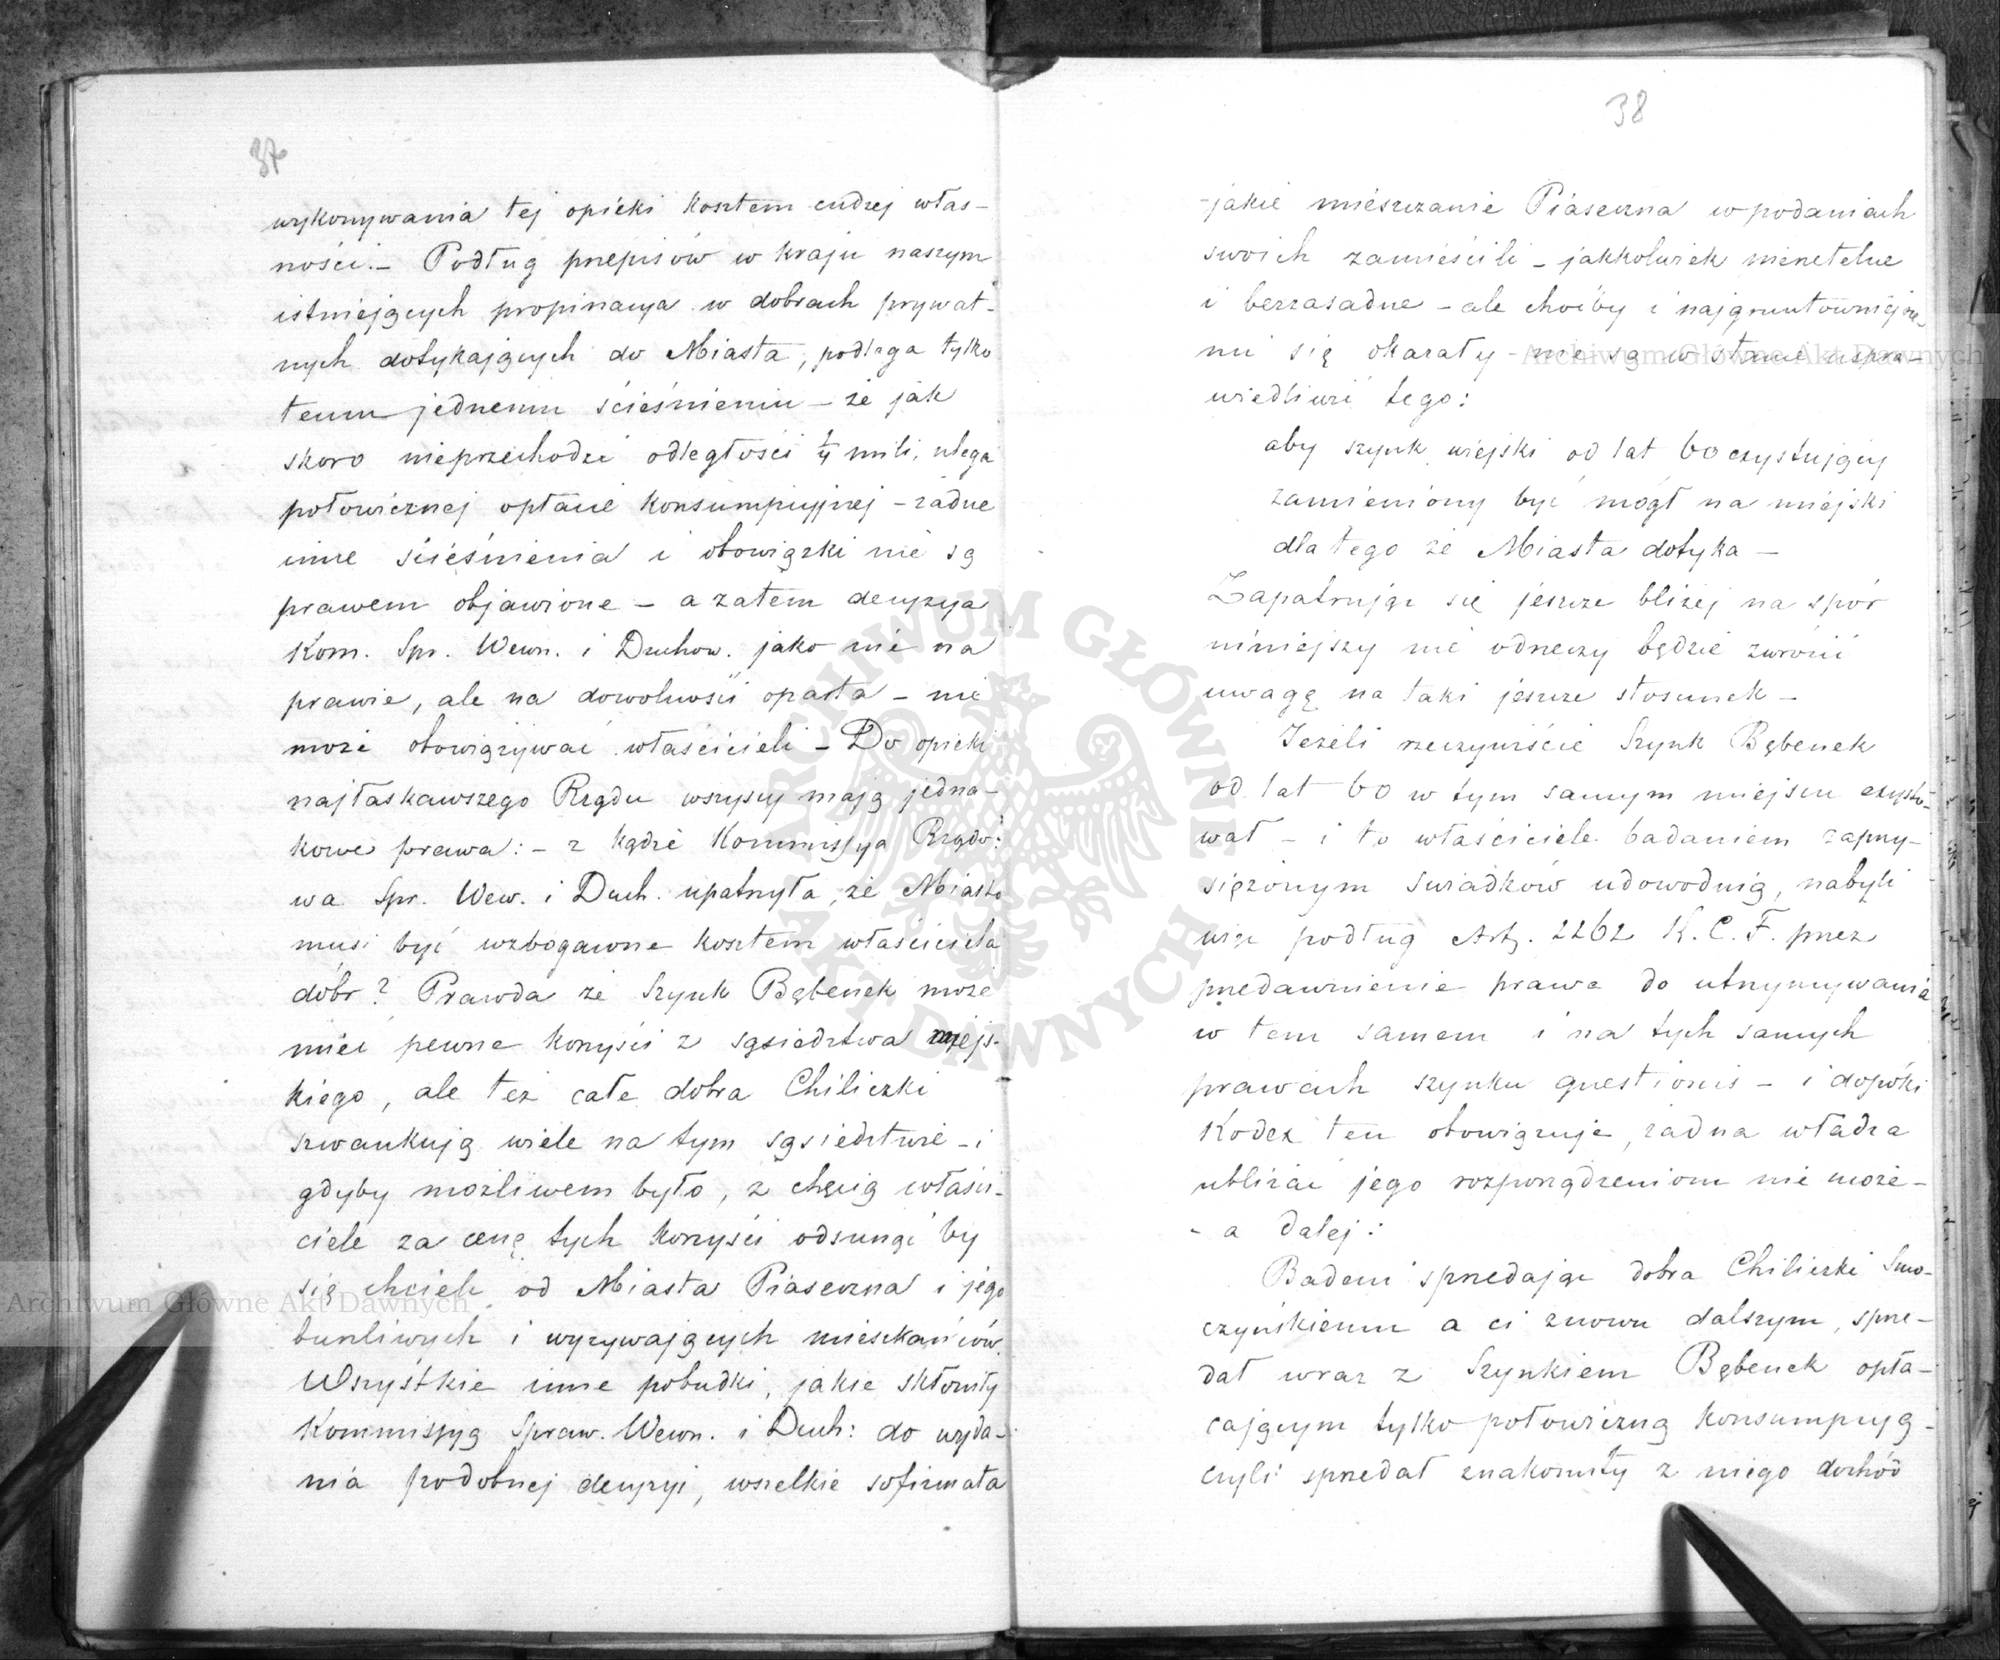 37
wykonywania tej opieki kosztem cudzej włas-
ności. – Podług przepisów w kraju naszym
istniejących propinacya w dobrach prywat-
nych dotykających do Miasta, podlega tylko
temu jednemu ścieśnieniu – że jak
skoro nieprzechodzi odległości ¼ mili, ulega
połowicznej opłacie konsumpcyjnej – żadne
inne ścieśnienia i obowiązki nie są
prawem objawione – a zatem decyzya
Kom. Spr. Wewn. i Duchow. jako nie na
prawie, ale na dowolności oparta – nie
może obowiązywać właścicieli – Do opieki
najłaskawszego Rządu wszyscy mają jedna-
kowe prawa: – z kądże Kommissya Rządo:
wa Spr. Wew. i Duch. upatrzyła, że Miasto
musi być wzbogacone kosztem właściciela
dóbr? Prawda że Szynk Bębenek może
mieć pewne korzyści z sąsiedztwa miejs-
kiego, ale też całe dobra Chiliczki
szwankują wiele na tym sąsiedztwie – i
gdyby możliwem było, z chęcią właści-
ciele za cenę tych korzyści odsunąć by
się chcieli od Miasta Piaseczna i jego
burzliwych i wyzywających mieszkańców.
Wszystkie inne pobudki, jakie skłoniły
Kommissyą Spraw. Wewn. i Duch: do wyda-
nia podobnej decyzyi, wszelkie sofizmata
38
jakie mieszczanie Piaseczna w podaniach
swoich zamieścili – jakkolwiek nierzetelne
i bezzasadne – ale choćby i najgruntowniejsze-
mi się okazały – nie są w stanie uspra-
wiedliwić tego:
aby szynk wiejski od lat 60 exystujący
zamieniony być mógł na miejski
dla tego że Miasta dotyka –
Zapatrując się jeszcze bliżej na spór
niniejszy nie odrzeczy będzie zwrócić
uwagę na taki jeszcze stosunek –
Jeżeli rzeczywiście Szynk Bębenek
od lat 60 w tym samym miejscu exysto-
wał – i to właściciele badaniem zaprzy-
siężonym świadków udowodnią, nabyli
więc podług Art. 2262 K. C. F. przez
przedawnienie prawa do utrzymywania
w tem samem i na tych samych
prawach szynku questionis – i dopóki
Kodex ten obowiązuje, żadna władza
ubliżać jego rozporządzeniom nie może –
- a dalej:
Badeni sprzedając dobra Chiliczki Smo-
czyńskiemu a ci znowu dalszym, sprze-
dał wraz z Szynkiem Bębenek opła-
cającym tylko połowiczną konsumpcyą -
czyli sprzedał znakomity z niego dochód
Archiwum Główne Akt Dawnych
Archiwum Główne Akt Dawnych
ARCHIWUM GŁÓWNE AKT DAWNYCH